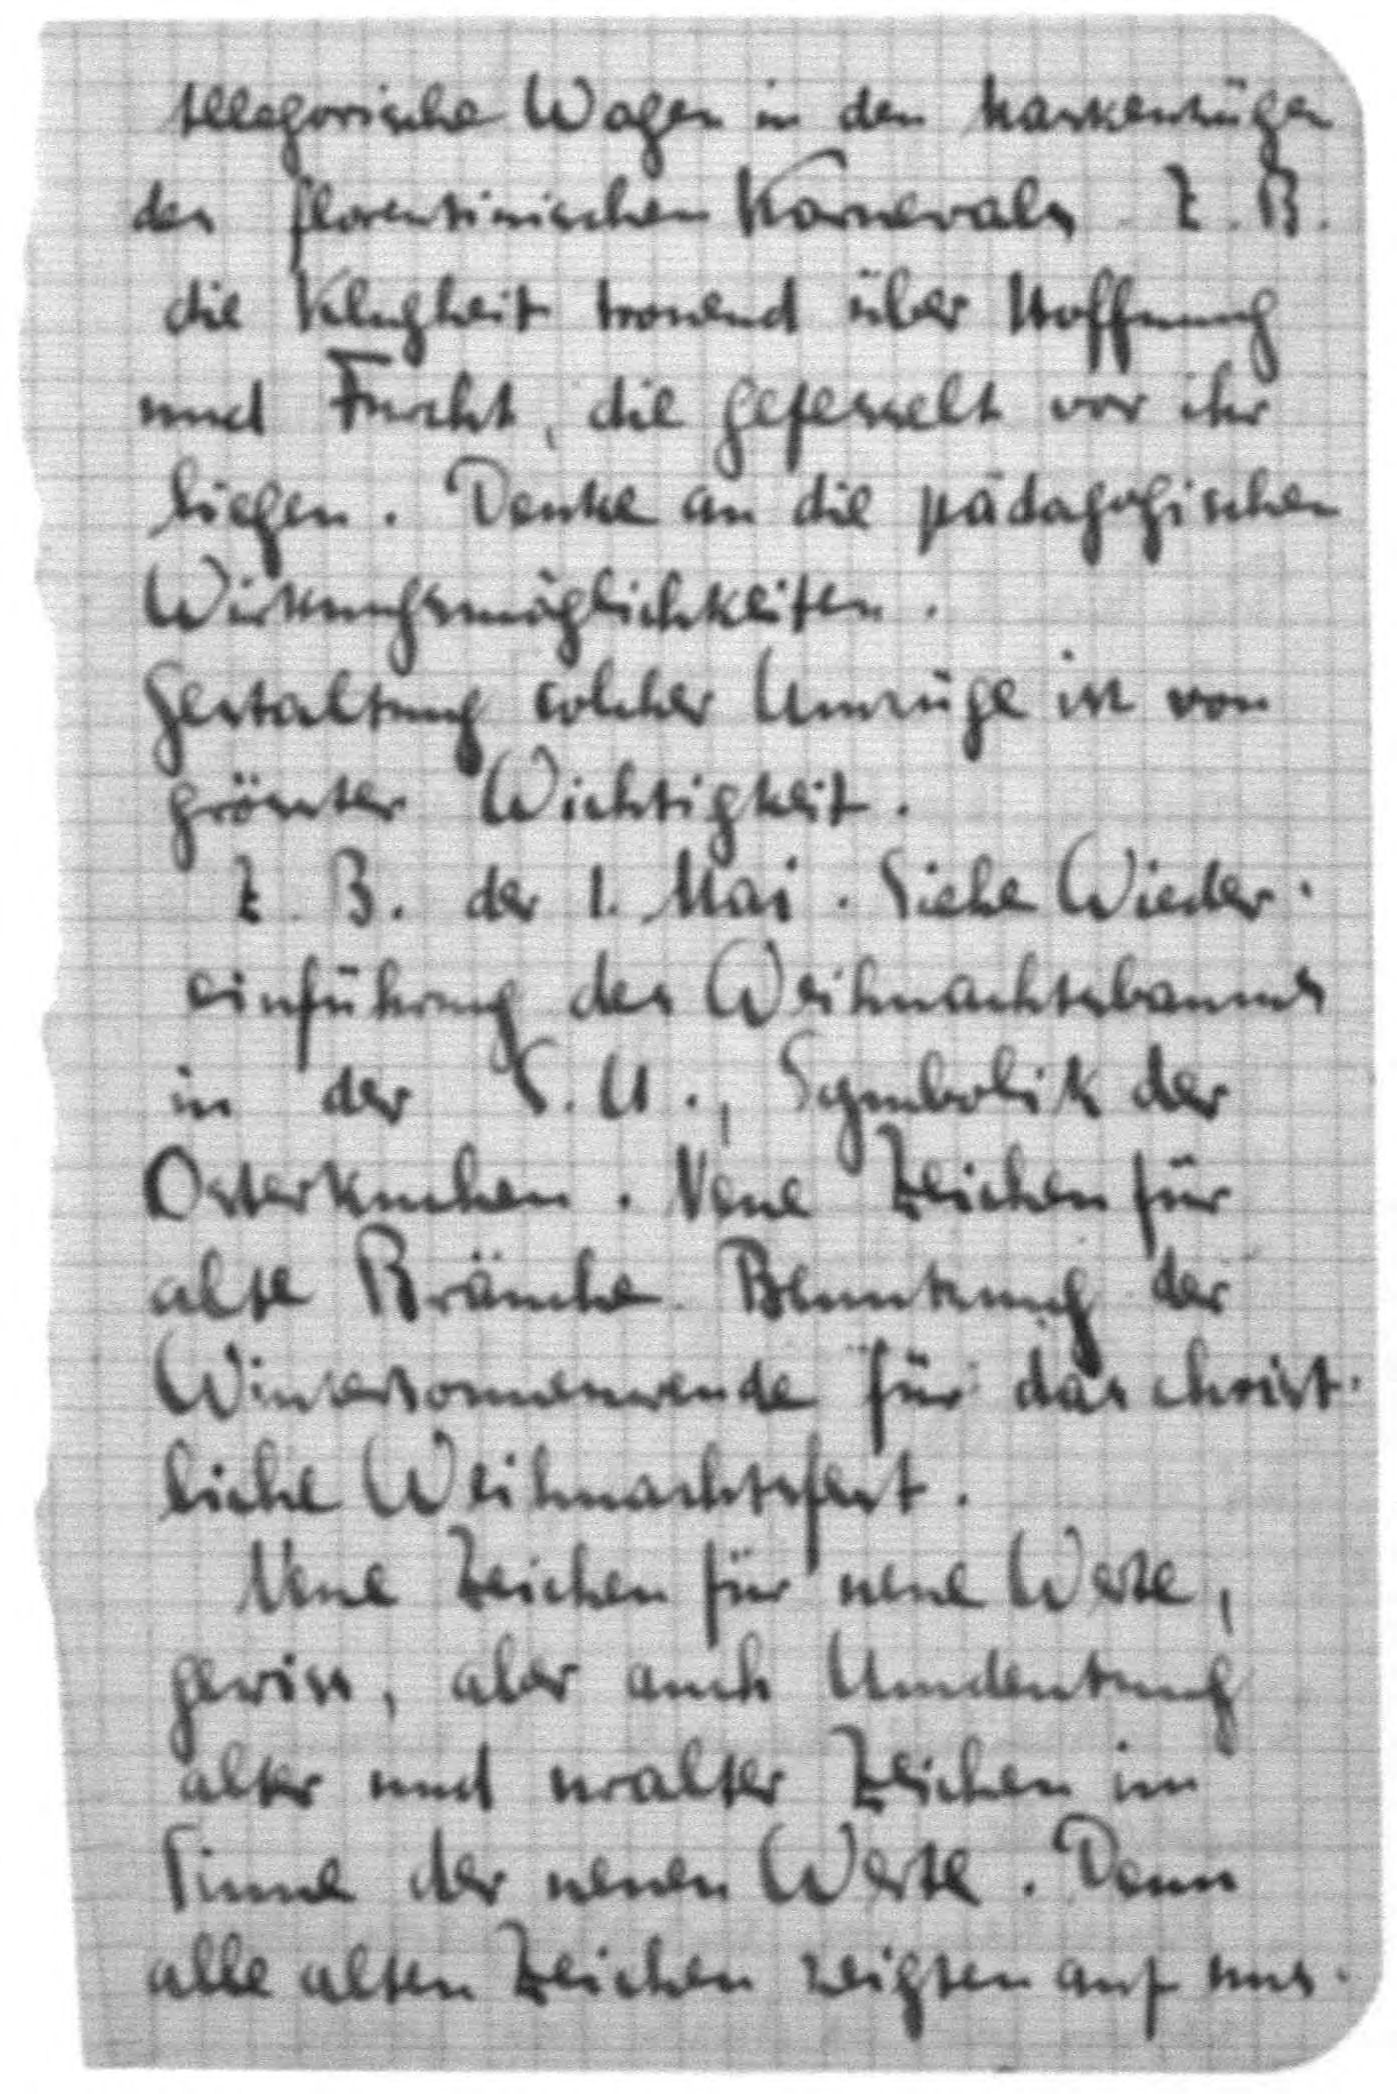 Allegorische Wagen in den Maskenzügen
des florentinischen Karnevals. Z. B.
die Klugheit tronend über Hoffnung
und Furcht, die gefesselt vor ihr
liegen. Denke an die pädagogischen
Wirkungsmöglichkeiten.
Gestaltung solcher Umzüge ist von
grösster Wichtigkeit.
Z. B. der 1. Mai. Siehe Wieder-
einführung des Weihnachtsbaumes
in der S.U., Symbolik der
Osterkuchen. Neue Zeichen für
alte Bräuche. Benutzung der
Wintersonnenwende für das christ-
liche Weihnachtsfest.
Neue Zeichen für neue Werte,
gewiss, aber auch Umdeutung
alter und uralter Zeichen im
Sinne der neuen Werte. Denn
alle alten Zeichen zeigten auf uns.